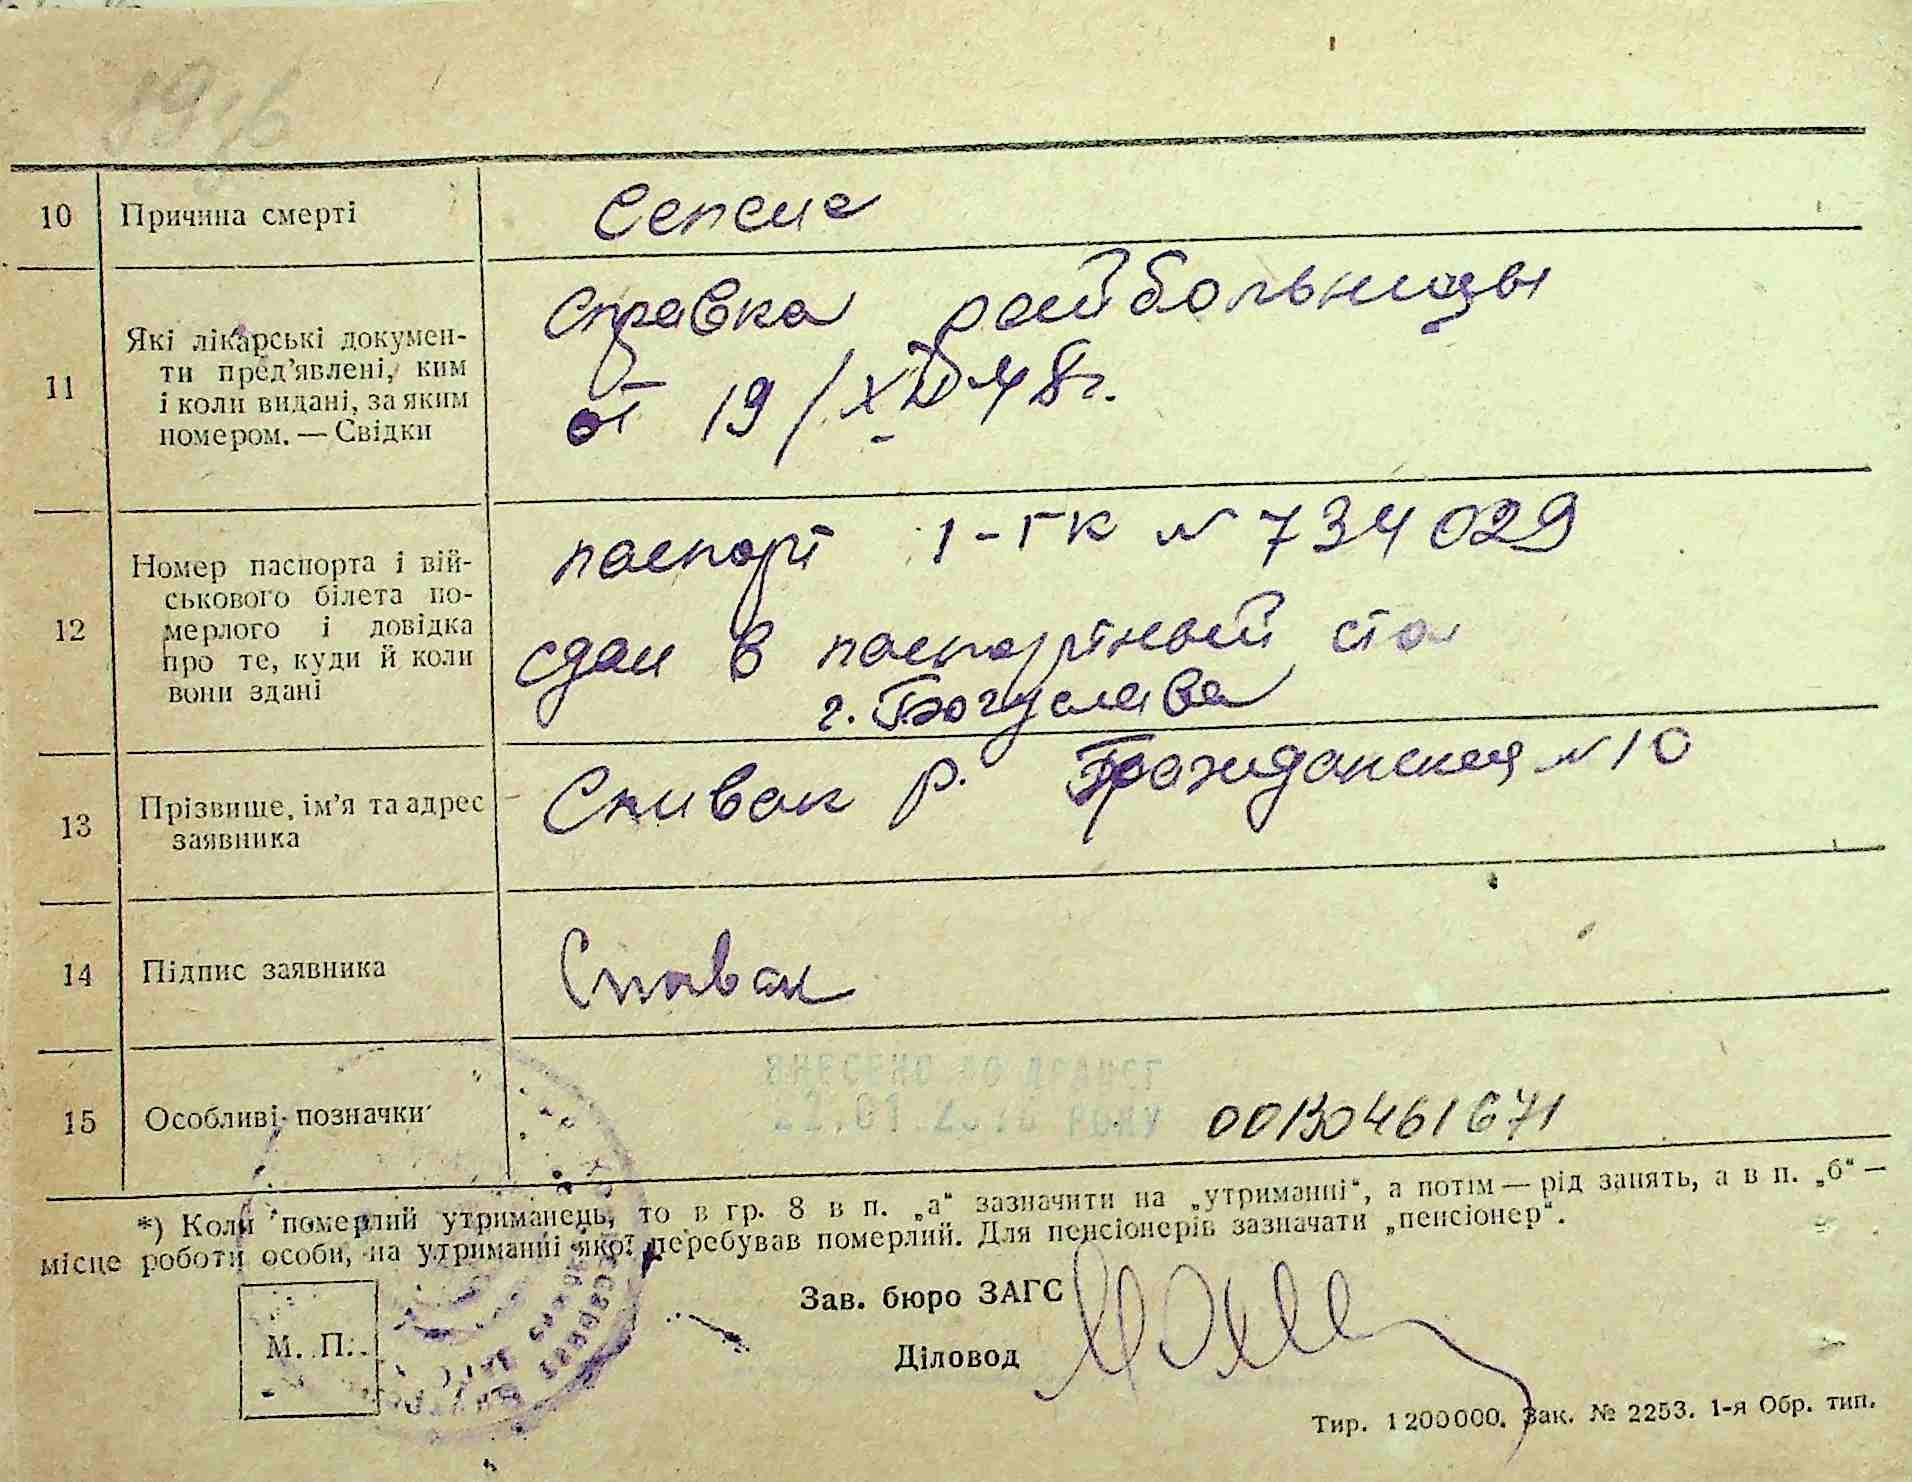 10 Причина смерті Сепсис
11 Які лікарські докумен-
ти пред’явлені, ким
і коли видані, за яким
номером. — Свідки
Справка райбольницы
от 19/XII 48г.
12 Номер паспорта і вій-
ськового білета по-
мерлого і довідка
про те, куди й коли
вони здані
паспорт 1-ГК N 734029
сдан в паспортный стол
г. Богуслава
13 Прізвище, ім’я та адрес
заявника
Спивак Р. Гражданская N 10
14 Підпис заявника Спивак
15 Особливі позначки
ВНЕСЕНО ДО ДРАЦСГ
РОКУ 00130461671
*) Коли померлий утриманець, то в гр. 8 в п. „а“ зазначити на „утриманні“, а потім — рід занять, а в п. „б“ —
місце роботи особи, на утриманні якої перебував померлий. Для пенсіонерів зазначати „пенсіонер“.
М. П.
Зав. бюро ЗАГС
Діловод
Тир. 1200000. Зак. № 2253. 1-я Обр. тип.